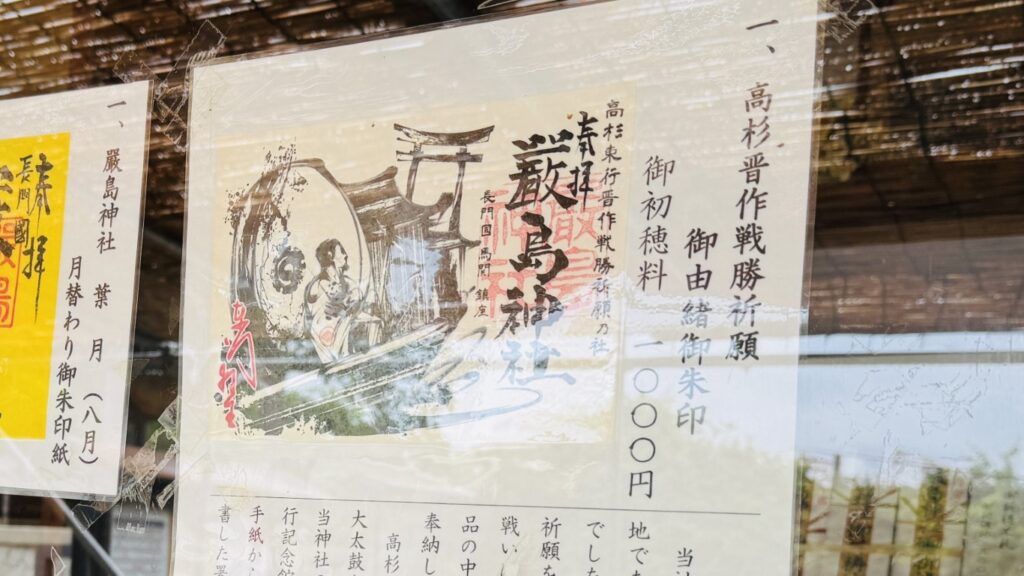 一、高杉晋作戦勝祈願
御由緒御朱印
御初穂料 一〇〇〇円
高杉東行晋作戦勝祈願の社
奉拝
厳島神社
長門国馬関鎮座
当社
地でも
でした
祈願を
戦い
品の中
奉納し
高杉
大太鼓
当神社の
行記念館
手紙から
書した
一、嚴島神社 葉月(八月)
月替わり御朱印紙
奉拝
長門國